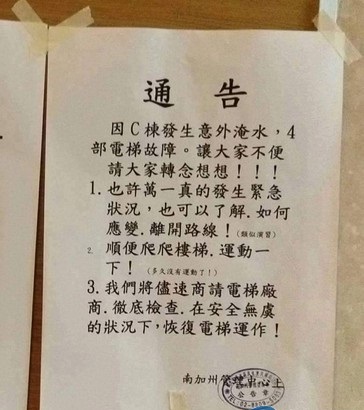 通 告
因C棟發生意外淹水，4
部電梯故障。讓大家不便
請大家轉念想想！！！
1. 也許萬一真的發生緊急
狀況，也可以了解.如何
應變.離開路線！(類似演習)
2. 順便爬爬樓梯.運動一
下！(多久沒有運動了！)
3. 我們將儘速商請電梯廠
商.徹底檢查.在安全無虞
的狀況下，恢復電梯運作！
南加州管理中心